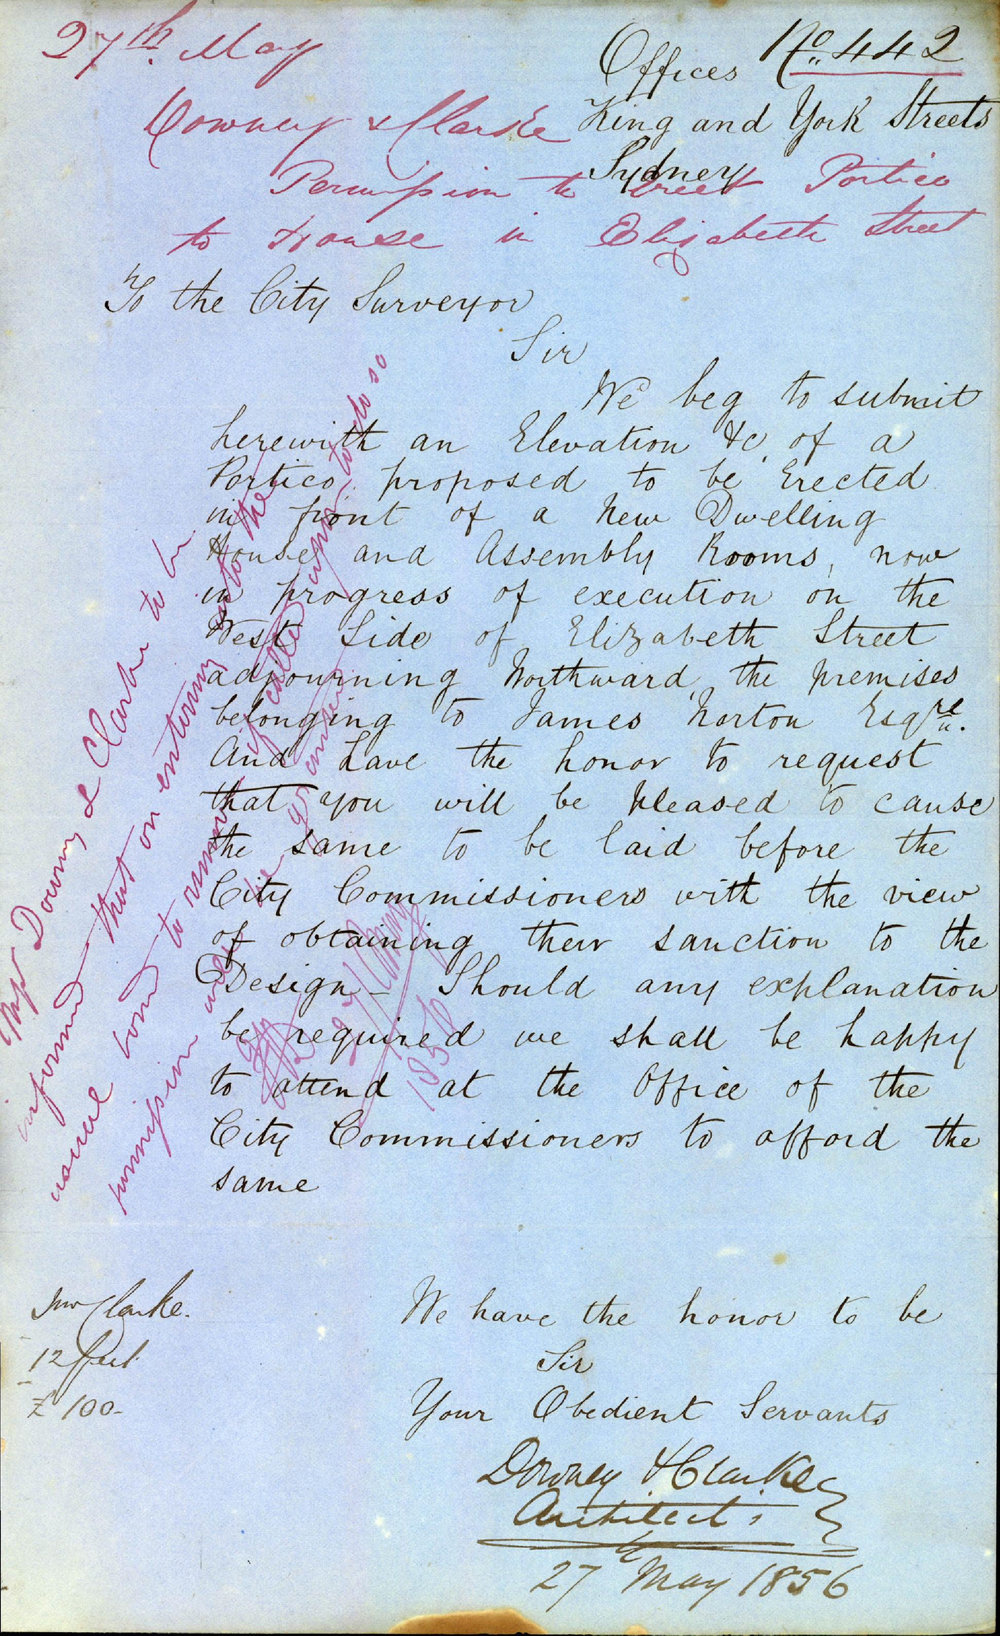 27th. May
No. 442
Offices
King and York Streets
Sydney
Downey & Clarke
Permission to Erect Portico
to House in Elizabeth Street
To the City Surveyor
Sir
We beg to submit
herewith an Elevation &c. of a
Portico, proposed to be Erected
in front of a New Dwelling
House and Assembly Rooms, now
in progress of execution on the
West Side of Elizabeth Street
adjourning Northward, the premises
belonging to James Norton Esqre.
And have the honor to request
that you will be pleased to cause
the same to be laid before the
City Commissioners with the view
of obtaining their sanction to the
Design_ Should any explanation
be required we shall be happy
to attend at the Office of the
City Commissioners to afford the
same
We have the honor to be
Sir
Your Obedient Servants
Downey & Clarke
Architects
27 May 1856
Downey & Clarke to be
informed that on entering into the
usual bond to remove if called upon to do so
permission will be granted
27 May
1856
Clarke.
12 feet
£100-